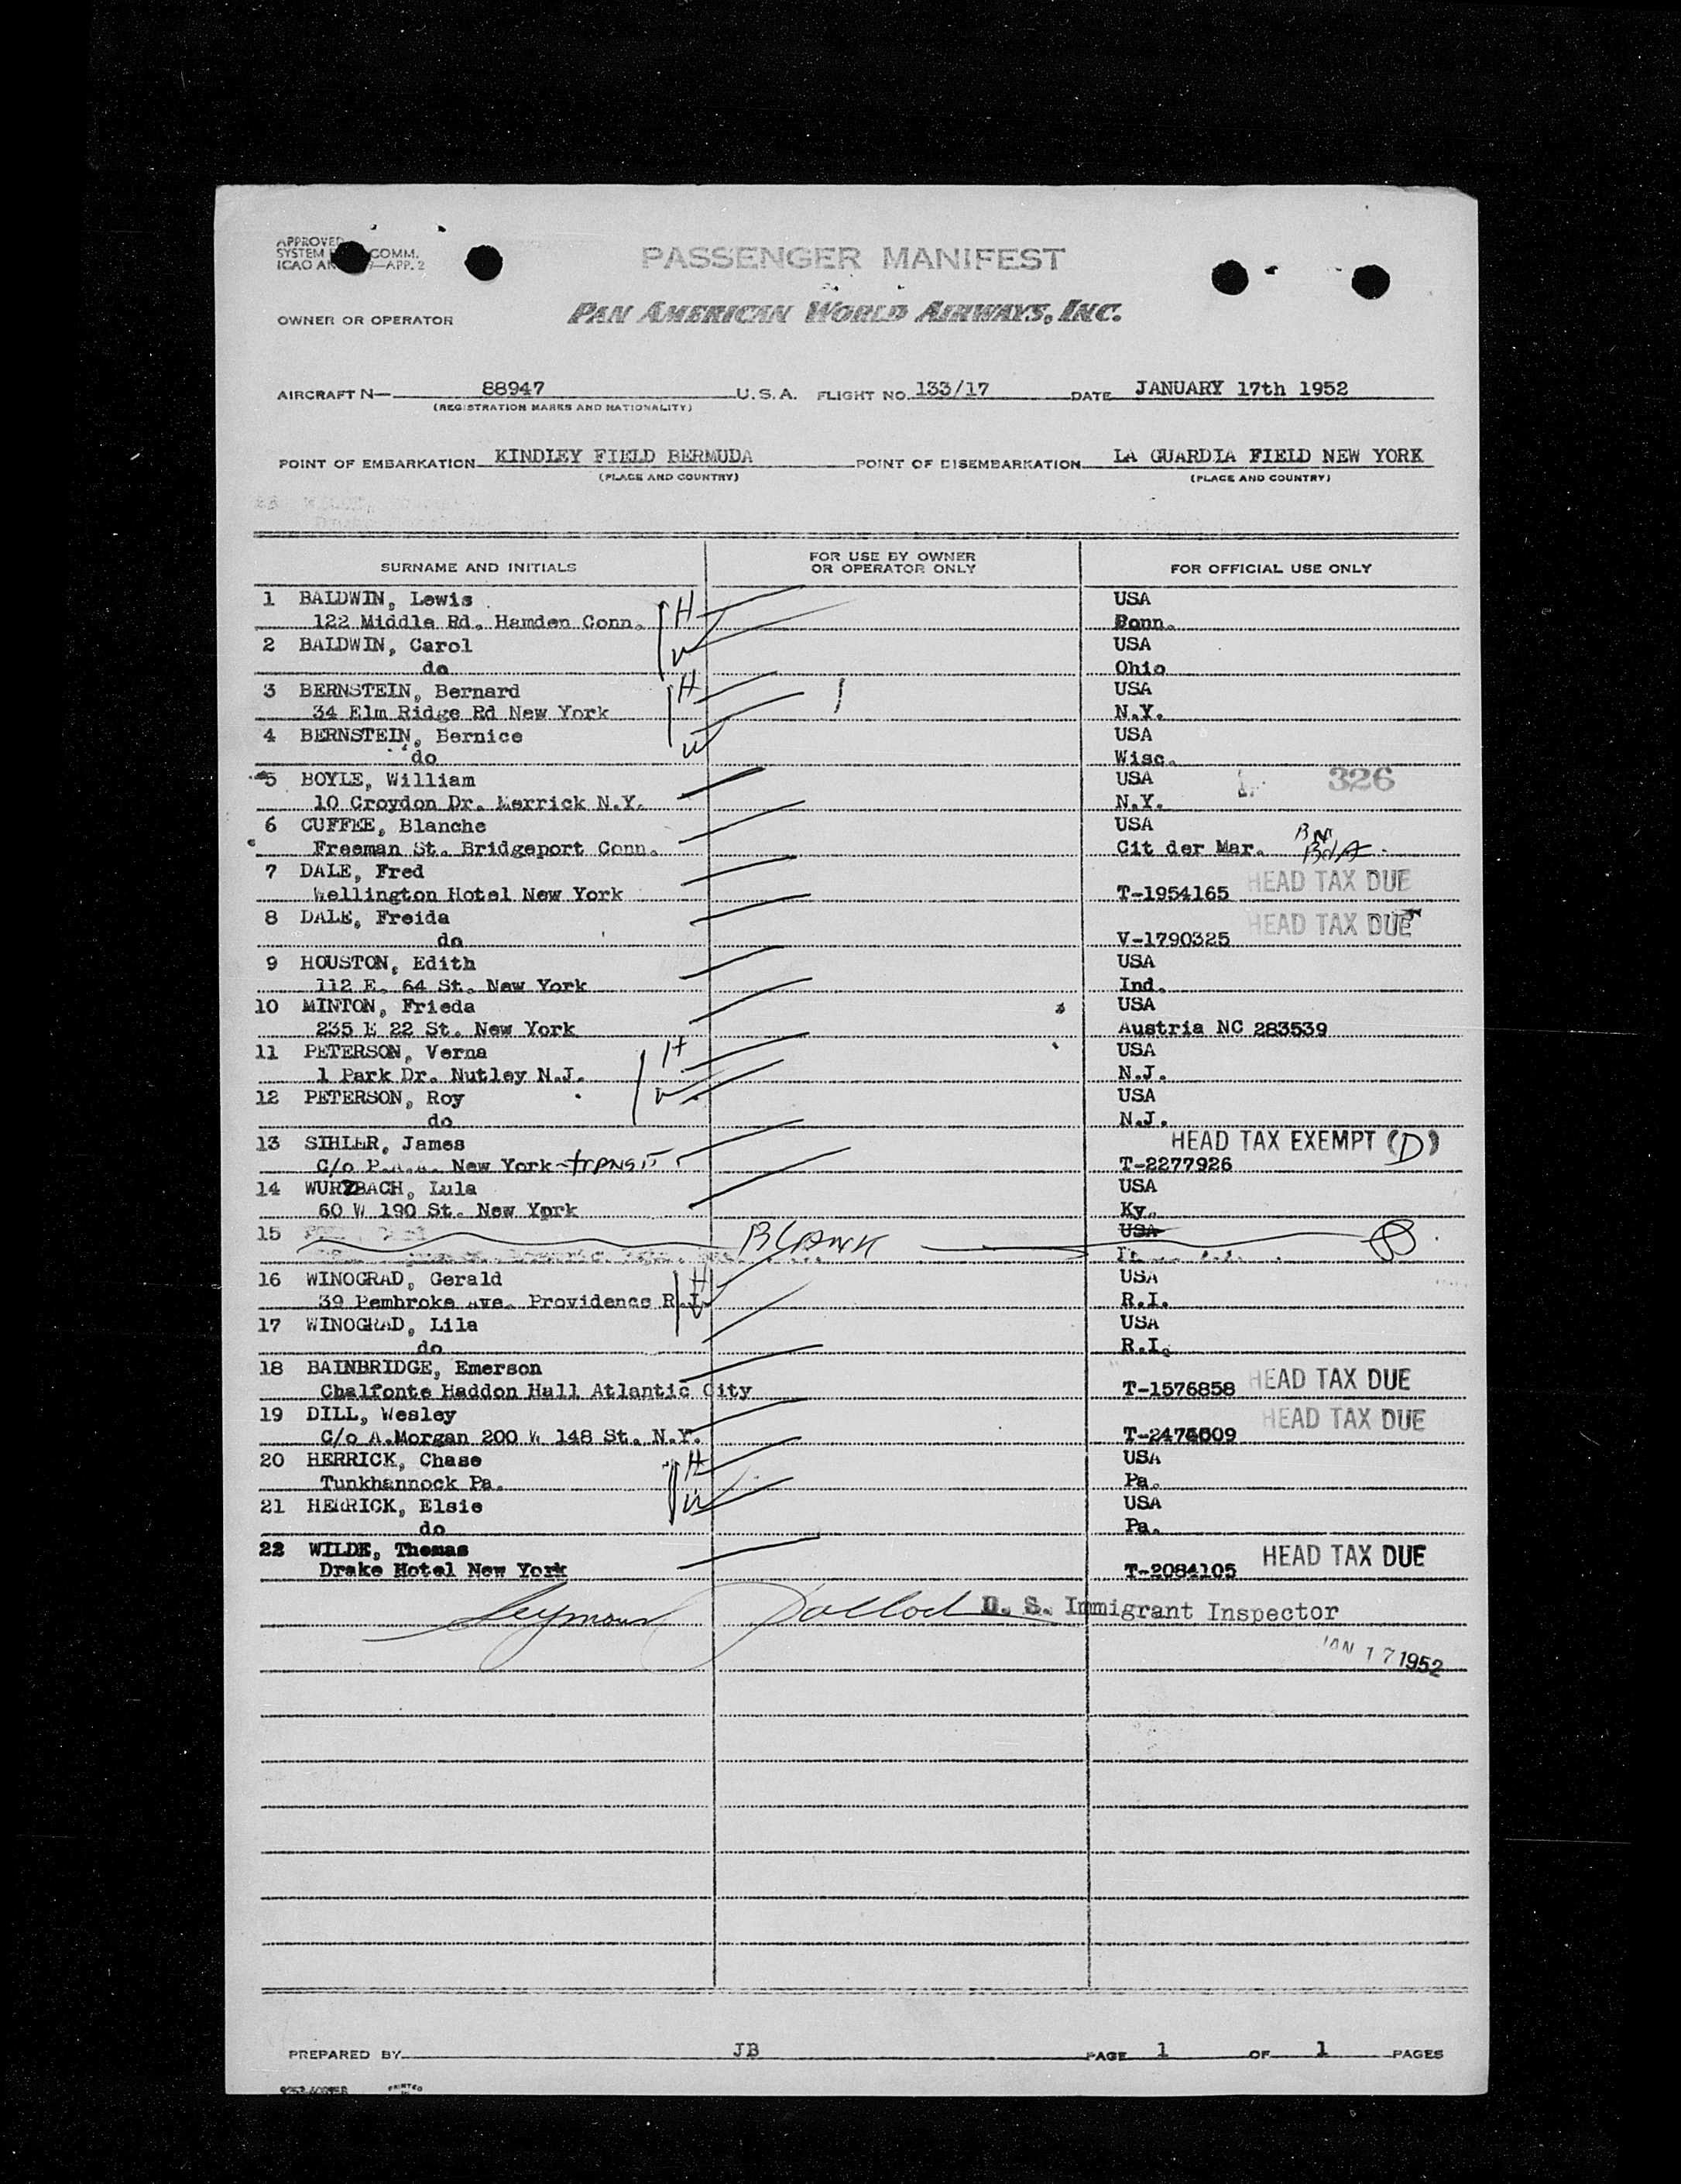 APPROVED
SYSTEM COMM.
ICAO AN —APP. 2
PASSENGER MANIFEST
OWNER OR OPERATOR PAN AMERICAN WORLD AIRWAYS, INC.
AIRCRAFT N— 88947 U.S.A. FLIGHT NO. 133/17 DATE JANUARY 17th 1952
(REGISTRATION MARKS AND NATIONALITY)
POINT OF EMBARKATION KINDLEY FIELD BERMUDA POINT OF DISEMBARKATION LA GUARDIA FIELD NEW YORK
(PLACE AND COUNTRY) (PLACE AND COUNTRY)
SURNAME AND INITIALS FOR USE BY OWNER OR OPERATOR ONLY FOR OFFICIAL USE ONLY
1 BALDWIN, Lewis H USA
122 Middle Rd. Hamden Conn. Conn.
2 BALDWIN, Carol W USA
do Ohio
3 BERNSTEIN, Bernard H USA
34 Elm Ridge Rd New York N.Y.
4 BERNSTEIN, Bernice W USA
do Wisc.
5 BOYLE, William USA 326
10 Croydon Dr. Merrick N.Y. N.Y.
6 CUFFEE, Blanche USA
Freeman St. Bridgeport Conn. Cit der Mar.
7 DALE, Fred HEAD TAX DUE
Wellington Hotel New York T-1954165
8 DALE, Freida HEAD TAX DUE
do V-1790325
9 HOUSTON, Edith USA
112 E. 64 St. New York Ind.
10 MINTON, Frieda USA
235 E 22 St. New York Austria NC 283539
11 PETERSON, Verna H USA
1 Park Dr. Nutley N.J. N.J.
12 PETERSON, Roy W USA
do N.J.
13 SIHLER, James HEAD TAX EXEMPT (D)
C/o P.A.A. New York - TRANSIT T-2277926
14 WURZBACH, Lula USA
60 W 190 St. New York Ky.
15 BLANK USA
16 WINOGRAD, Gerald H USA
39 Pembroke Ave. Providence R.I. R.I.
17 WINOGRAD, Lila W USA
do R.I.
18 BAINBRIDGE, Emerson HEAD TAX DUE
Chalfonte Haddon Hall Atlantic City T-1576858
19 DILL, Wesley HEAD TAX DUE
C/o A.Morgan 200 W 148 St. N.Y.
20 HERRICK, Chase H USA
Tunkhannock Pa. Pa.
21 HERRICK, Elsie W USA
do Pa.
22 WILDE, Thomas HEAD TAX DUE
Drake Hotel New York T-2084105
Seymour U. S. Immigrant Inspector
JAN 17 1952
PREPARED BY JB PAGE 1 OF 1 PAGES
PRINTED